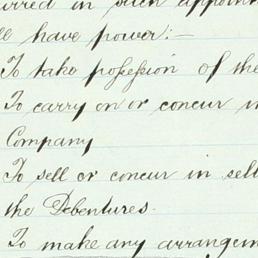 rred in such appoint
ll have power:—
To take possession of the
To carry on or concur in
Company
To sell or concur in sell
the Debentures.
To make any arrangem